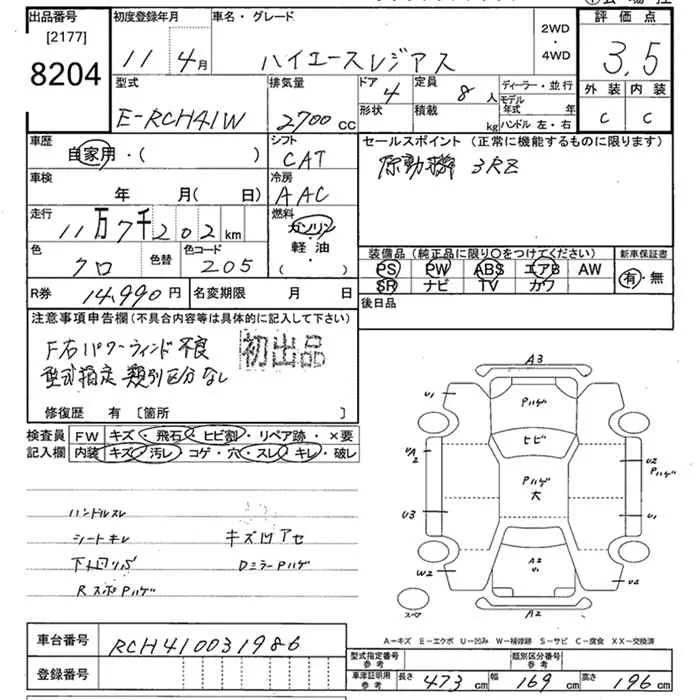 出品番号
[2177]
8204
初度登録年月
11年4月
車名・グレード
ハイエースレジアス
2WD
・
4WD
評価点
3.5
外装 内装
C C
型式
E-RCH41W
排気量
2700cc
ドア 4
形状
定員 8人
積載 kg
ディーラー・並行
モデル年式 年
ハンドル 左・右
車歴
自家用・( )
シフト
CAT
セールスポイント (正常に機能するものに限ります)
原動機 3RZ
車検
年 月( 日)
冷房
AAC
走行
11万7千202km
燃料
ガソリン
軽・油
( )
色
クロ
色替
色コード
205
装備品(純正品に限り○をつけてください)
PS PW ABS エアB AW
SR ナビ TV カワ
新車保証書
有・無
R券 14,990円
名変期限 月 日
後日品
注意事項申告欄(不具合内容等は具体的に記入して下さい)
F右パワーウィンド不良
型式指定 類別区分なし
初出品
修復歴 有 [箇所 ]
検査員
記入欄
FW キズ・飛石・ヒビ割・リペア跡・×要
内装 キズ・汚レ・コゲ・穴・スレ・キレ・破レ
ハンドルスレ
シートキレ
キズ凹アセ
下廻りサビ
DミラーPハゲ
RスポPハゲ
A3
U1
Pハゲ
UA2
ヒビ
U2
Pハゲ
Pハゲ
大
U3
U1
W2
A2
U1
U2
A2
A=キズ E=エクボ U=凹み W=補修跡 S=サビ C=腐食 XX=交換済
車台番号 RCH410031986
登録番号
型式指定番号
参考
類別区分番号
参考
車庫証明用
参考
長さ 473cm 幅 169cm 高さ 196cm